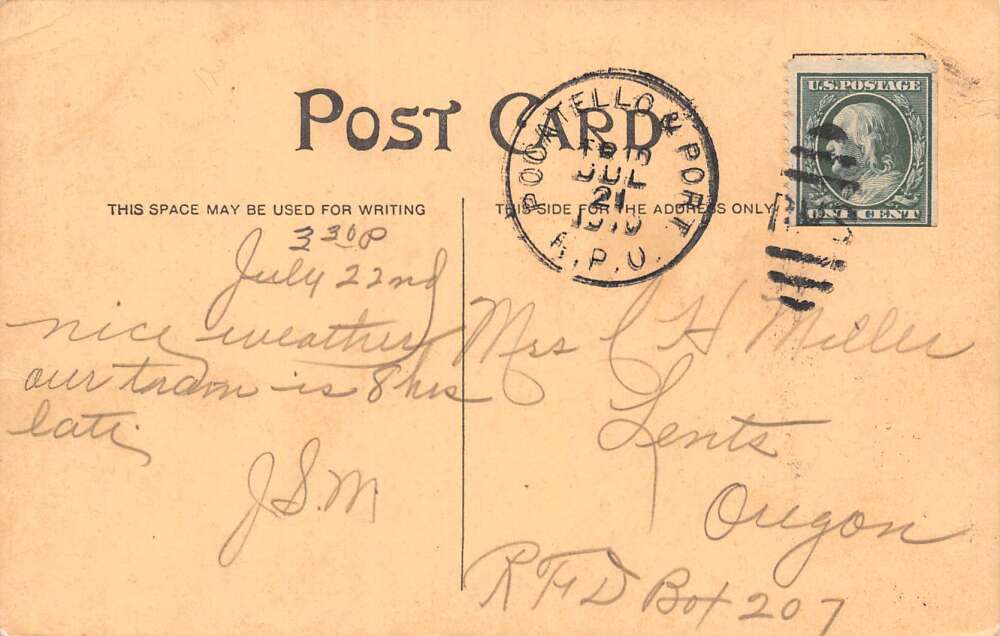 POST CARD
THIS SPACE MAY BE USED FOR WRITING
THIS SIDE FOR THE ADDRESS ONLY
POCATELLO & PORT.
JUL
21
1910
R.P.O.
U.S. POSTAGE
ONE CENT
3 30 P
July 22nd
nice weather
our train is 8 hrs
late
J.S.M
Mrs C H Miller
Lents
Oregon
RFD Box 207